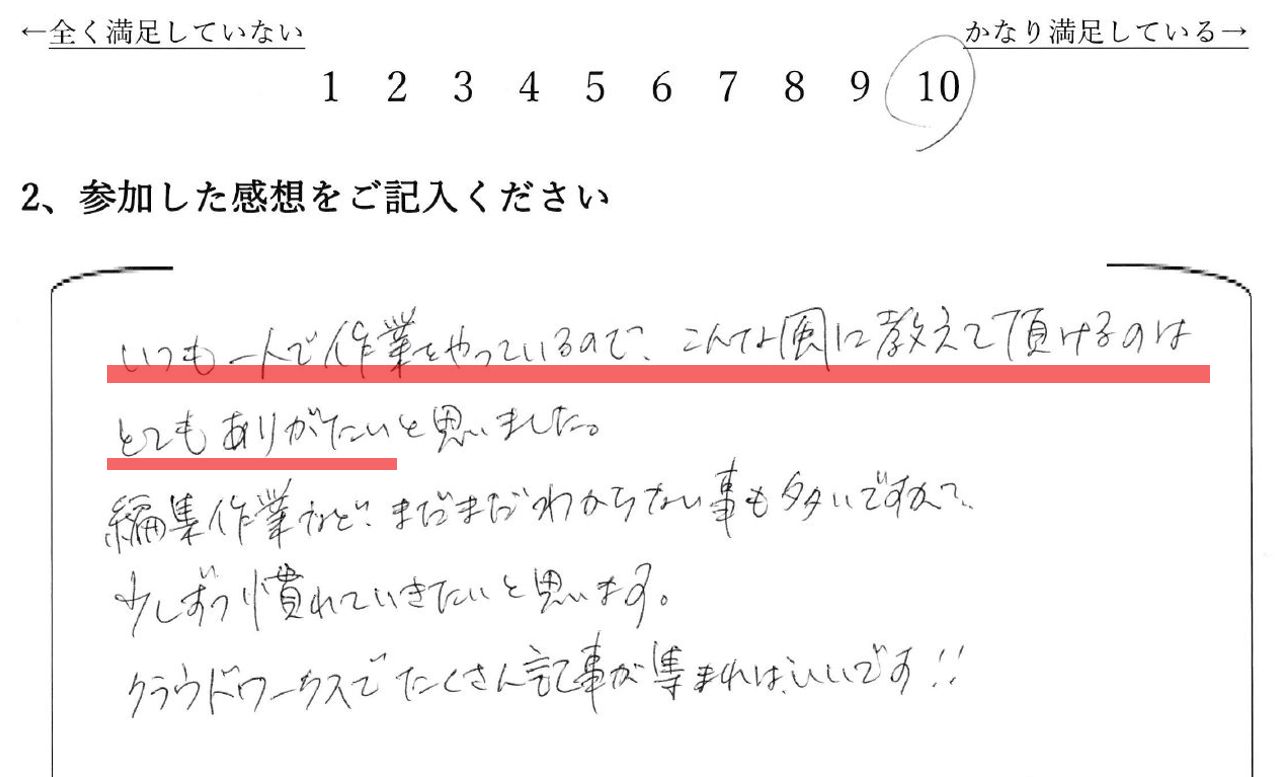 ←全く満足していない かなり満足している→
1 2 3 4 5 6 7 8 9 10
2、参加した感想をご記入ください
いつも一人で作業をやっているので、こんな風に教えて頂けるのは
とてもありがたいと思いました。
編集作業など、まだまだわからない事も多いですが、
少しずつ慣れていきたいと思います。
クラウドワークスでたくさん記事が集まればいいです!!